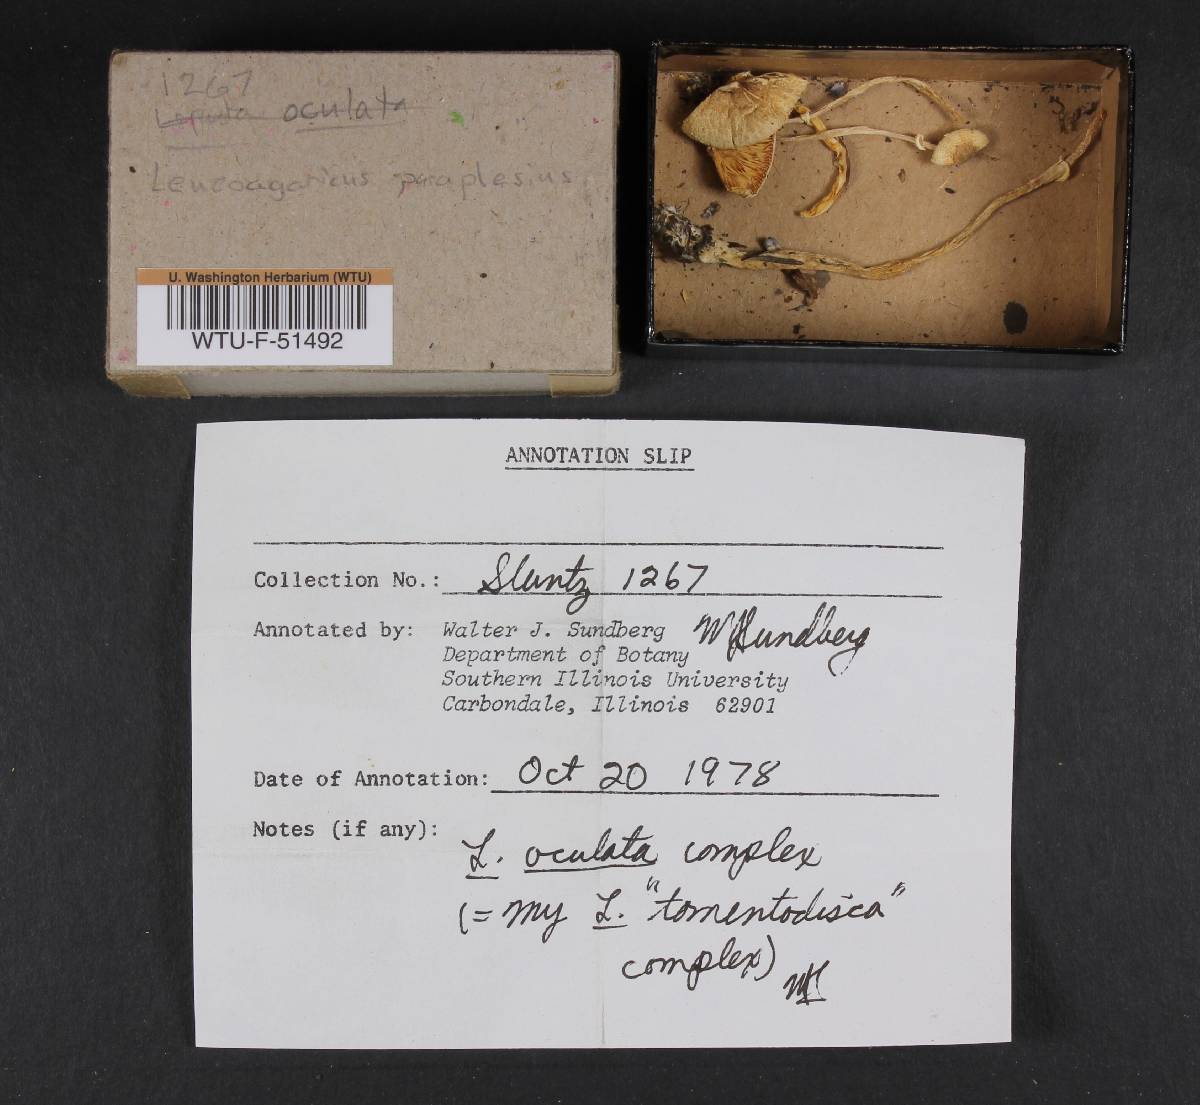 1267
Lepiota oculata
Leucoagaricus paraplesius
U. Washington Herbarium (WTU)
WTU-F-51492
ANNOTATION SLIP
Collection No.: Sluntz 1267
Annotated by: Walter J. Sundberg WJSundberg
Department of Botany
Southern Illinois University
Carbondale, Illinois 62901
Date of Annotation: Oct 20 1978
Notes (if any):
L. oculata complex
(= my L. "tomentodisca"
complex) WJS